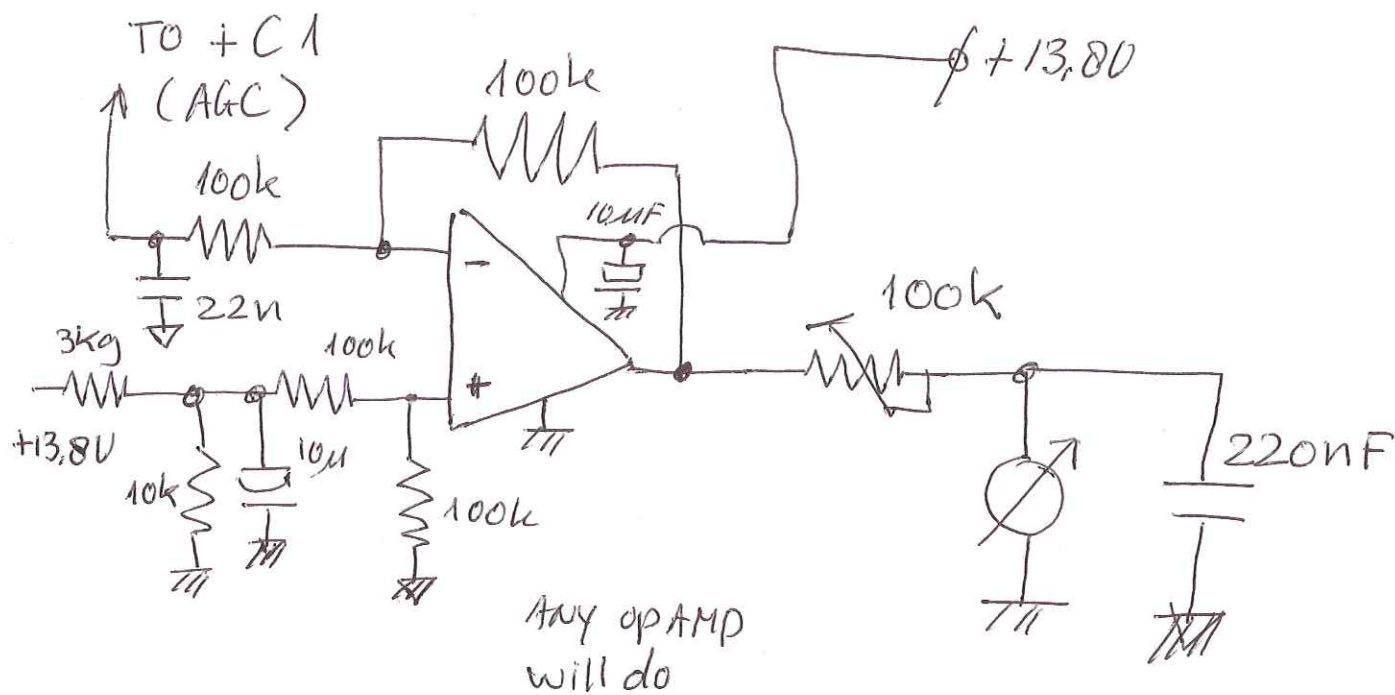 TO + C1
(AGC)
100k
+13,8V
100k
10µF
-
22n
100k
3k9
100k
+
+13,8V
10k
10µ
100k
220nF
ANY OPAMP
will do